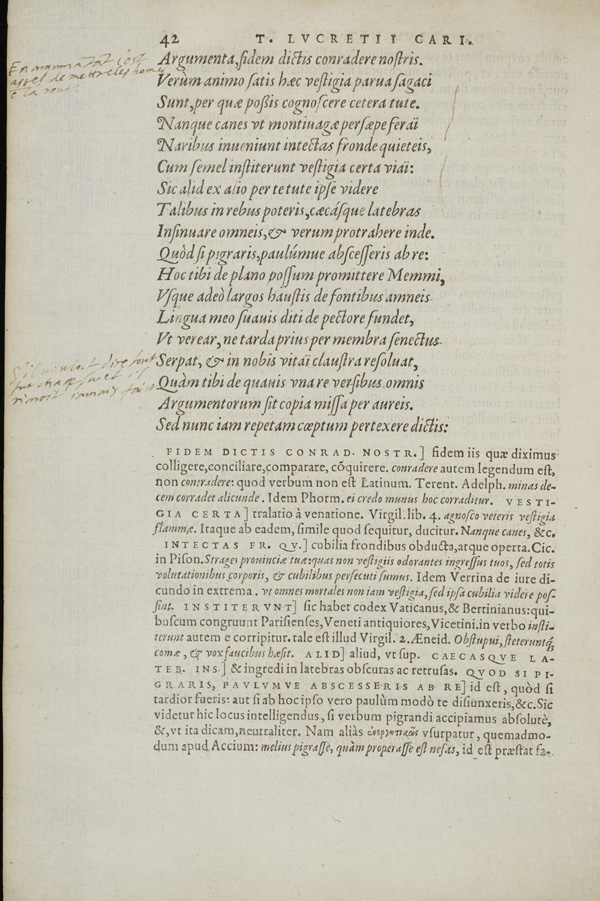 42 T. LVCRETII CARI.
Argumenta, fidem dictis conradere nostris.
Verùm animo satis hæc vestigia parua sagaci
Sunt, per quæ poßis cognoscere cetera tute.
Nanque canes vt montiuagæ persæpe feraï
Naribus inueniunt intectas fronde quieteis,
Cum semel institerunt vestigia certa viaï:
Sic alid ex alio per te tute ipse videre
Talibus in rebus poteris, cæcásque latebras
Insinuare omneis, & verum protrahere inde.
Quòd si pigraris, paulúmue abscesseris ab re:
Hoc tibi de plano possum promittere Memmi,
Vsque adeò largos haustis de fontibus amneis
Lingua meo suauis diti de pectore fundet,
Vt verear, ne tarda prius per membra senectus
Serpat, & in nobis vitaï claustra resoluat,
Quàm tibi de quauis vna re versibus omnis
Argumentorum sit copia missa per aureis.
Sed nunc iam repetam cœptum pertexere dictis:
FIDEM DICTIS CONRAD. NOSTR.] fidem iis quæ diximus
colligere, conciliare, comparare, cõquirere. conradere autem legendum est,
non contradere: quod verbum non est Latinum. Terent. Adelph. minas de-
cem corradet alicunde. Idem Phorm. ei credo munus hoc corraditur. VESTI-
GIA CERTA] tralatio à venatione. Virgil. lib. 4. agnosco veteris vestigia
flammæ. Itaque ab eadem, simile quod sequitur, ducitur. Nanque canes, &c.
INTECTAS FR. QV.] cubilia frondibus obducta, atque operta. Cic.
in Pison. Strages prouinciæ tuæ: quas non vestigiis odorantes ingressus tuos, sed totis
volutationibus corporis, & cubilibus persecuti sumus. Idem Verrina de iure di-
cundo in extrema. vt omnes mortales non iam vestigia, sed ipsa cubilia videre pos-
sint. INSTITERVNT] sic habet codex Vaticanus, & Bertinianus: qui-
buscum congruunt Parisienses, Veneti antiquiores, Vicetini. in verbo insti-
terunt autem e corripitur. tale est illud Virgil. 2. Æneid. Obstupui, steteruntq́;
comæ, & vox faucibus hæsit. ALID] aliud, vt sup. CAECASQVE LA-
TEB. INS.] & ingredi in latebras obscuras ac retrusas. QVOD SI PI-
GRARIS, PAVLVMVE ABSCESSERIS AB RE] id est, quòd si
tardior fueris: aut si ab hoc ipso vero paulùm modò te disiunxeris, &c. Sic
videtur hic locus intelligendus, si verbum pigrandi accipiamus absolutè,
&, vt ita dicam, neutraliter. Nam aliàs vsurpatur, quemadmo-
dum apud Accium: melius pigrasse, quàm properasse est nefas, id est præstat fa-